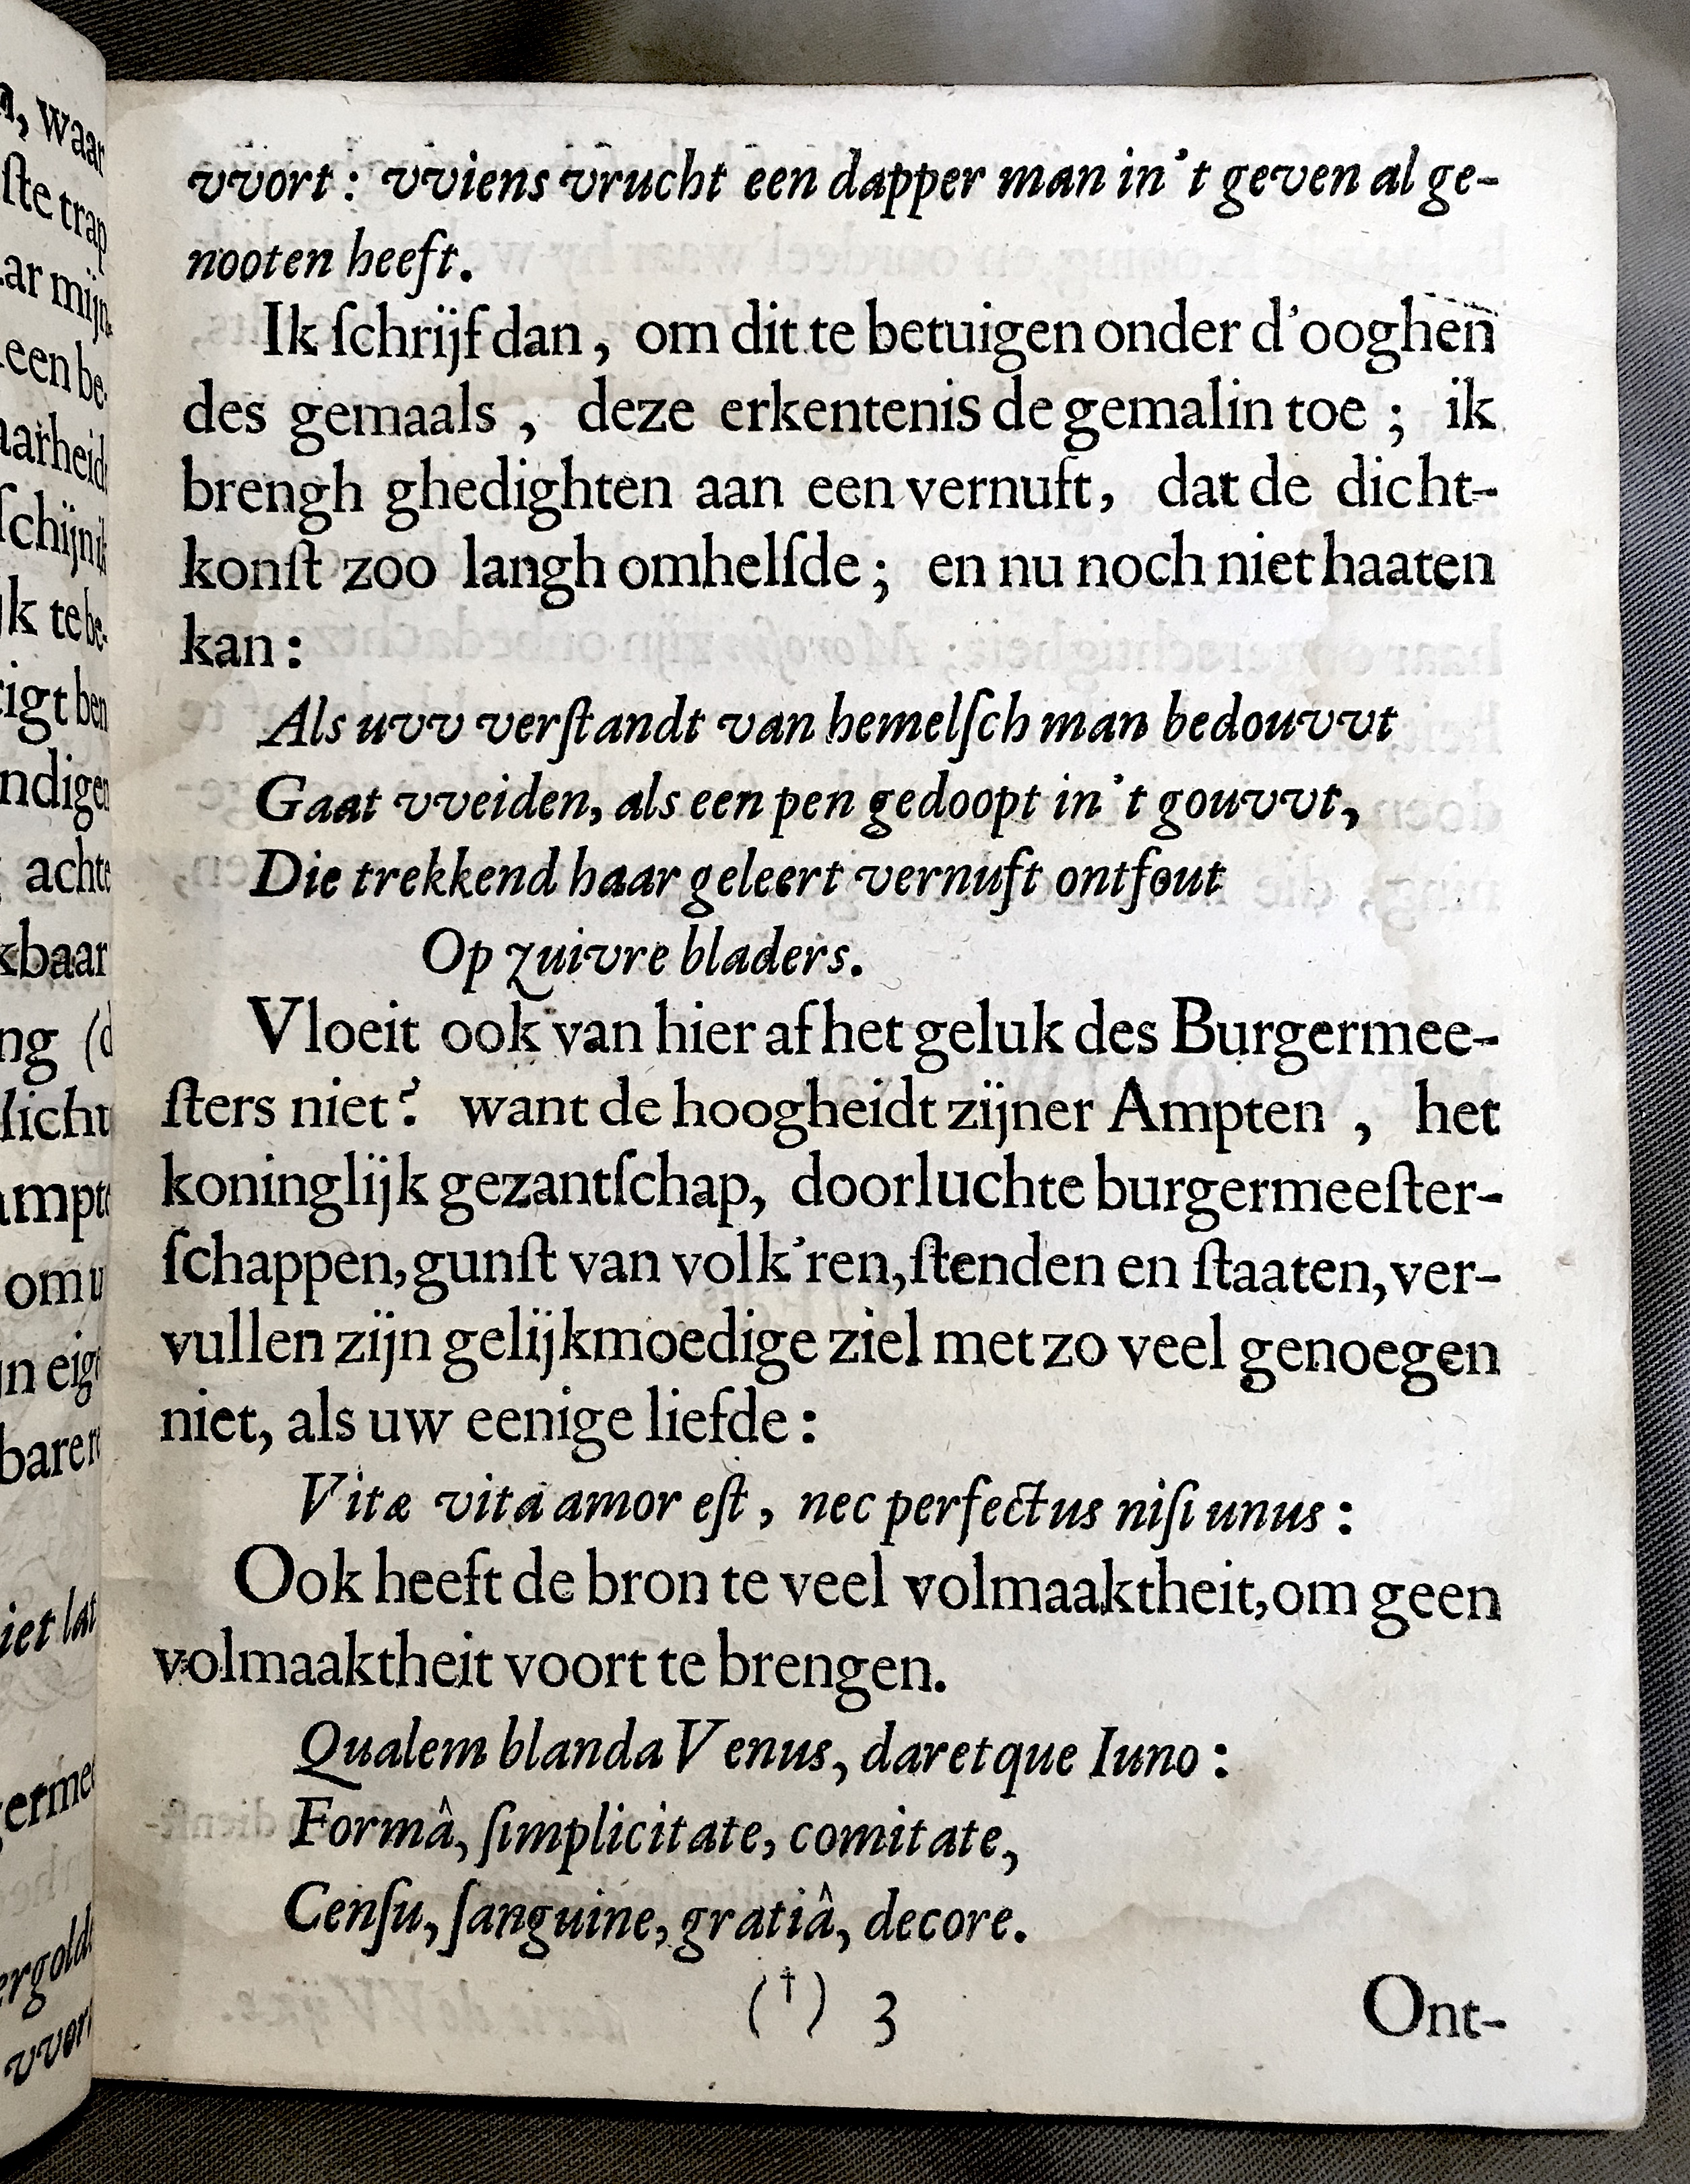 vvort: vviens vrucht een dapper man in't geven al ge-
nooten heeft.
Ik ſchrijf dan, om dit te betuigen onder d'ooghen
des gemaals, deze erkentenis de gemalin toe; ik
brengh ghedighten aan een vernuft, dat de dicht-
konſt zoo langh omhelſde; en nu noch niet haaten
kan:
Als uvv verſtandt van hemelſch man bedouvvt
Gaat vveiden, als een pen gedoopt in't gouvvt,
Die trekkend haar geleert vernuft ontfout
Op zuivre bladers.
Vloeit ook van hier af het geluk des Burgermee-
ſters niet? want de hoogheidt zijner Ampten, het
koninglijk gezantſchap, doorluchte burgermeeſter-
ſchappen, gunſt van volk'ren, ſtenden en ſtaaten, ver-
vullen zijn gelijkmoedige ziel met zo veel genoegen
niet, als uw eenige liefde:
Vitæ vita amor eſt, nec perfectus niſi unus:
Ook heeft de bron te veel volmaaktheit, om geen
volmaaktheit voort te brengen.
Qualem blanda Venus, daretque Iuno:
Formâ, ſimplicitate, comitate,
Cenſu, ſanguine, gratiâ, decore.
(†) 3
Ont-
waar
ſte trap
een be-
ſchijn
k te be-
igt ben
ndigen
achte
kbaar
ng (d
licht
om u